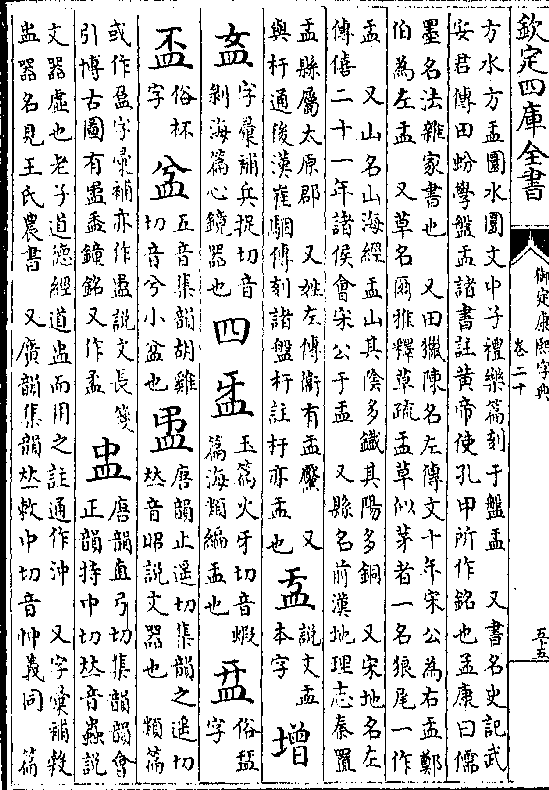 欽定四庫全書
御定康熙字典
卷二十
五十五
方水方盂圜水圜文中子禮樂篇刻于盤盂 又書名史記武
安君傳田蚡學盤盂諸書註黃帝使孔甲所作銘也孟康曰儒
墨名法雜家書也 又田獵陳名左傳文十年宋公為右盂鄭
伯為左盂 又草名爾雅釋草疏盂草似茅者一名狼尾一作
盂 又山名山海經盂山其陰多鐵其陽多銅 又宋地名左
傳僖二十一年諸侯會宋公于盂 又縣名前漢地理志秦置
盂縣屬太原郡 又姓左傳衛有盂黶 又
與杅通後漢崔駰傳刻諸盤杅註杅亦盂也
盓
說文盂
本字
增
字彙補兵捉切音
剝海篇心鏡器也
四
玉篇火牙切音蝦
篇海類編盂也
俗蓋
字
盃
俗杯
字
五音集韻胡雞
切音兮小盆也
唐韻止遙切集韻之遙切
𠀤音昭說文器也 類篇
或作 字彙補亦作 說文長箋
引博古圖有 盉鏡銘又作盉
盅
唐韻直弓切集韻韻會
正韻持中切𠀤音蟲說
文器虛也老子道德經道盅而用之註通作沖 又字彙補敕
盅器名見王氏農書 又廣韻集韻𠀤敕中切音忡義同 篇